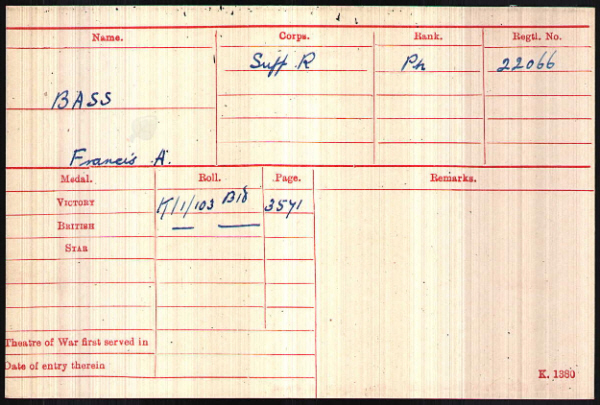 Name. Corps. Rank. Regtl. No.
Suff. R Pte 22066
BASS
Francis A.
Medal. Roll. Page. Remarks.
VICTORY K/1/103 B18 3571
BRITISH — —
STAR
Theatre of War first served in
Date of entry therein
K. 1380